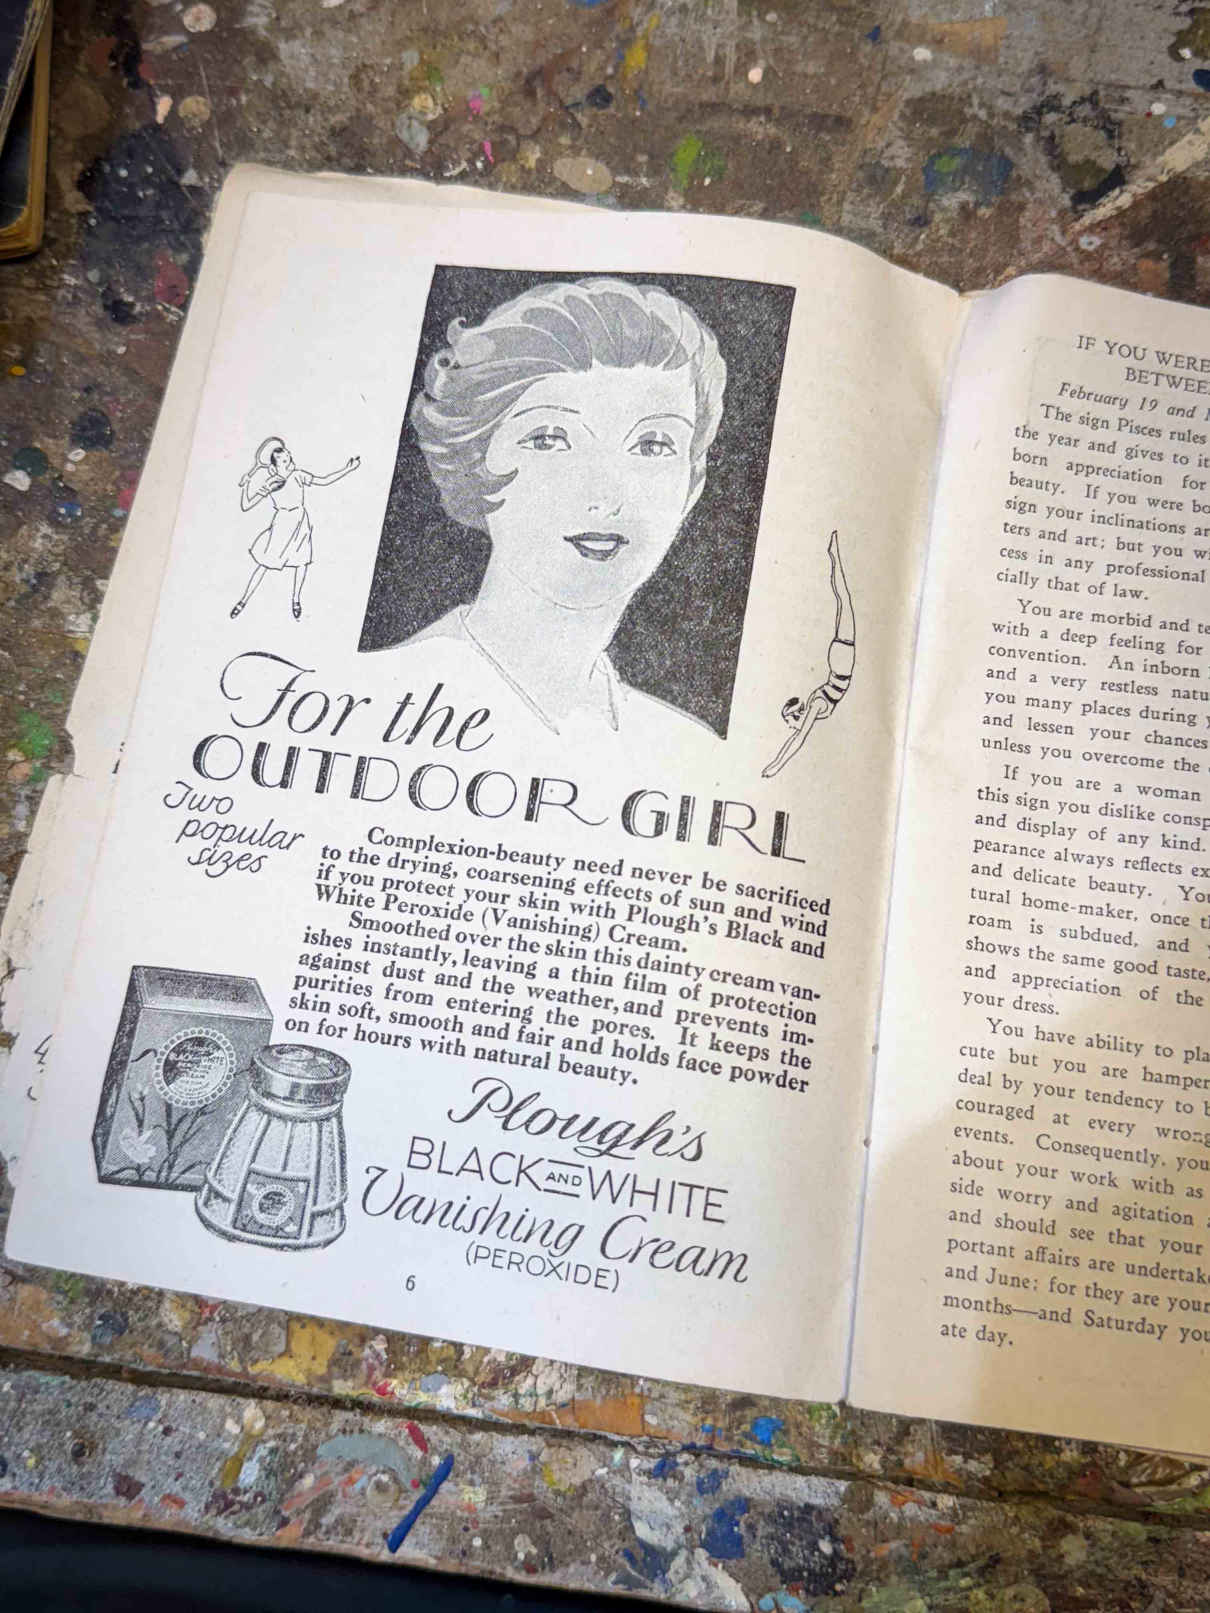 For the
OUTDOOR GIRL
Two
popular
sizes
Complexion-beauty need never be sacrificed
to the drying, coarsening effects of sun and wind
if you protect your skin with Plough's Black and
White Peroxide (Vanishing) Cream.
Smoothed over the skin this dainty cream van-
ishes instantly, leaving a thin film of protection
against dust and the weather, and prevents im-
purities from entering the pores. It keeps the
skin soft, smooth and fair and holds face powder
on for hours with natural beauty.
BLACK AND WHITE
Plough's
BLACK AND WHITE
Vanishing Cream
(PEROXIDE)
6
IF YOU WERE
February 19 and
The sign Pisces rules
the year and gives to it
born appreciation for
beauty. If you were
sign your inclinations
ters and art; but you
cess in any professional
cially that of law.
You are morbid and
with a deep feeling for
convention. An inborn
and a very restless
you many places during
and lessen your chances
unless you overcome the
If you are a woman
this sign you dislike
and display of any kind.
pearance always reflects
and delicate beauty.
tural home-maker, once
roam is subdued, and
shows the same good taste,
and appreciation of the
your dress.
You have ability to
cute but you are
deal by your tendency to
couraged at every wrong
events. Consequently, you
about your work with as
side worry and agitation
and should see that your
portant affairs are
and June; for they are your
months—and Saturday
ate day.